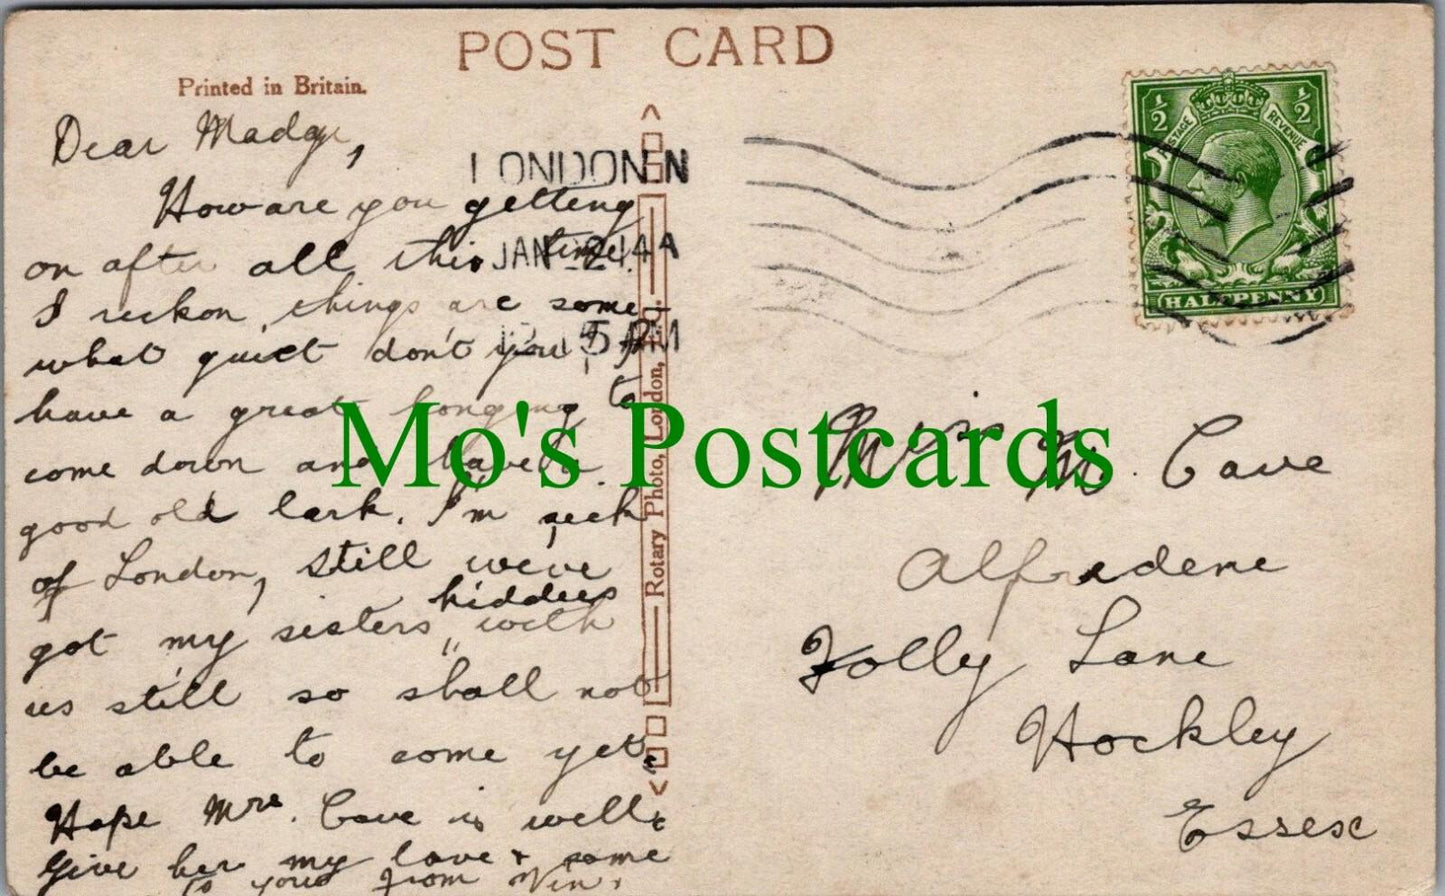 POST CARD
Printed in Britain.
Dear Madge,
How are you getting
on after all this time.
I reckon things are some-
what quiet don't you, I
have a great longing to
come down and have a
good old lark. I'm sick
of London, still we've
got my sisters kiddies with
us still so shall not
be able to come yet.
Hope Mrs. Cave is well &
give her my love & some
to you from Vin.
LONDON. N
JAN 2 14 A
12.15 AM
Rotary Photo, London, E.C.
POSTAGE
REVENUE
½
½
HALFPENNY
Mo's Postcards
Miss M. Cave
Alfredene
Folly Lane
Hockley
Essex